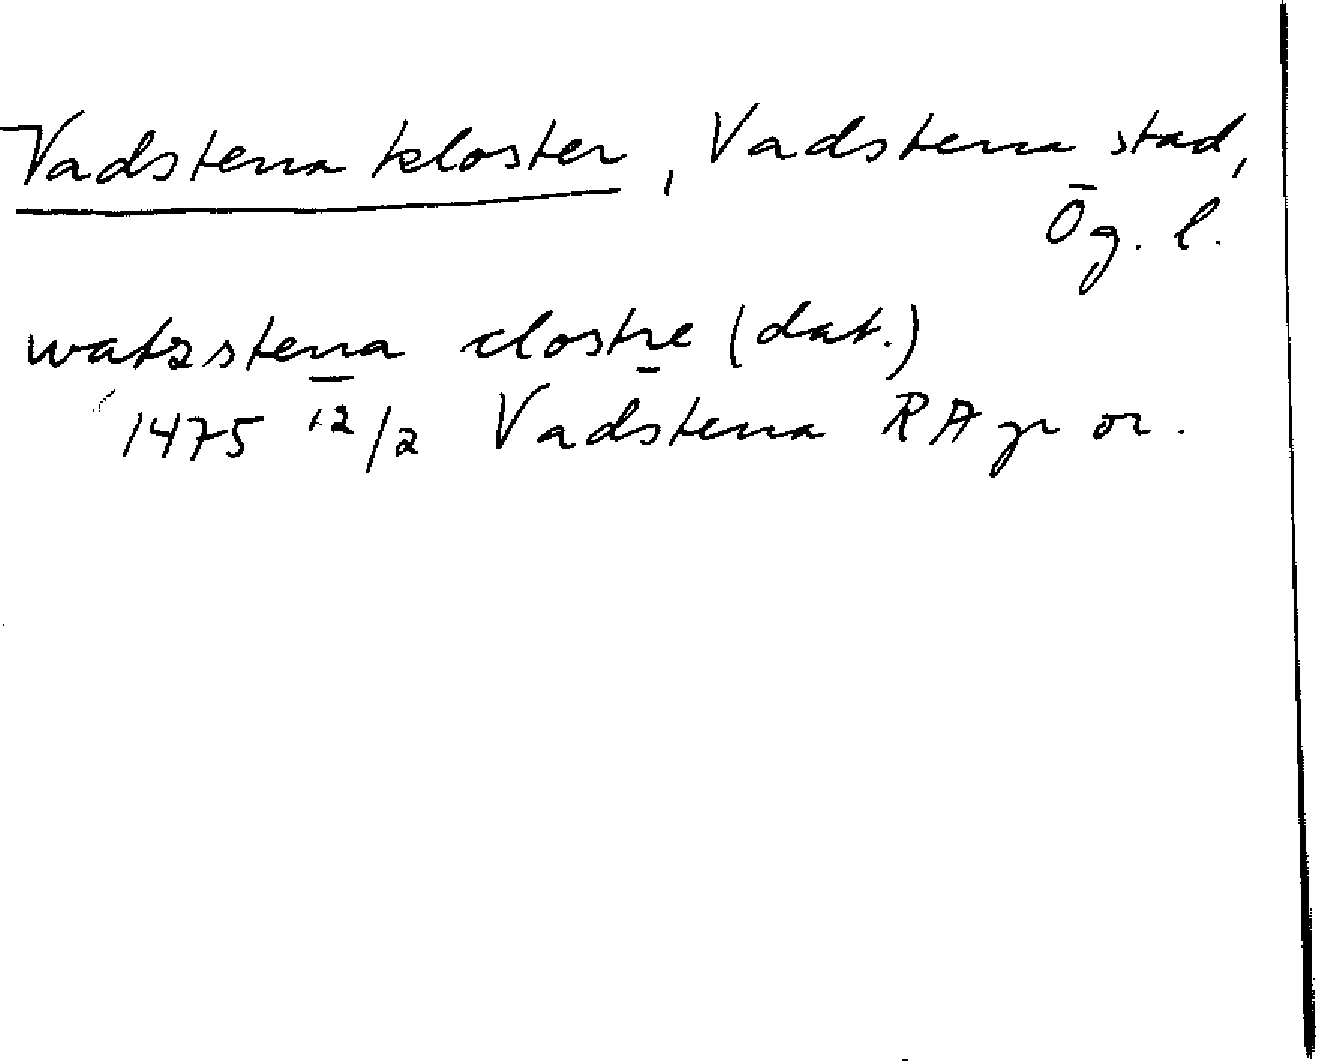 Vadstena kloster, Vadstena stad,
Ög. l.
watzstena clostre (dat.)
1475 12/2 Vadstena RA p or.